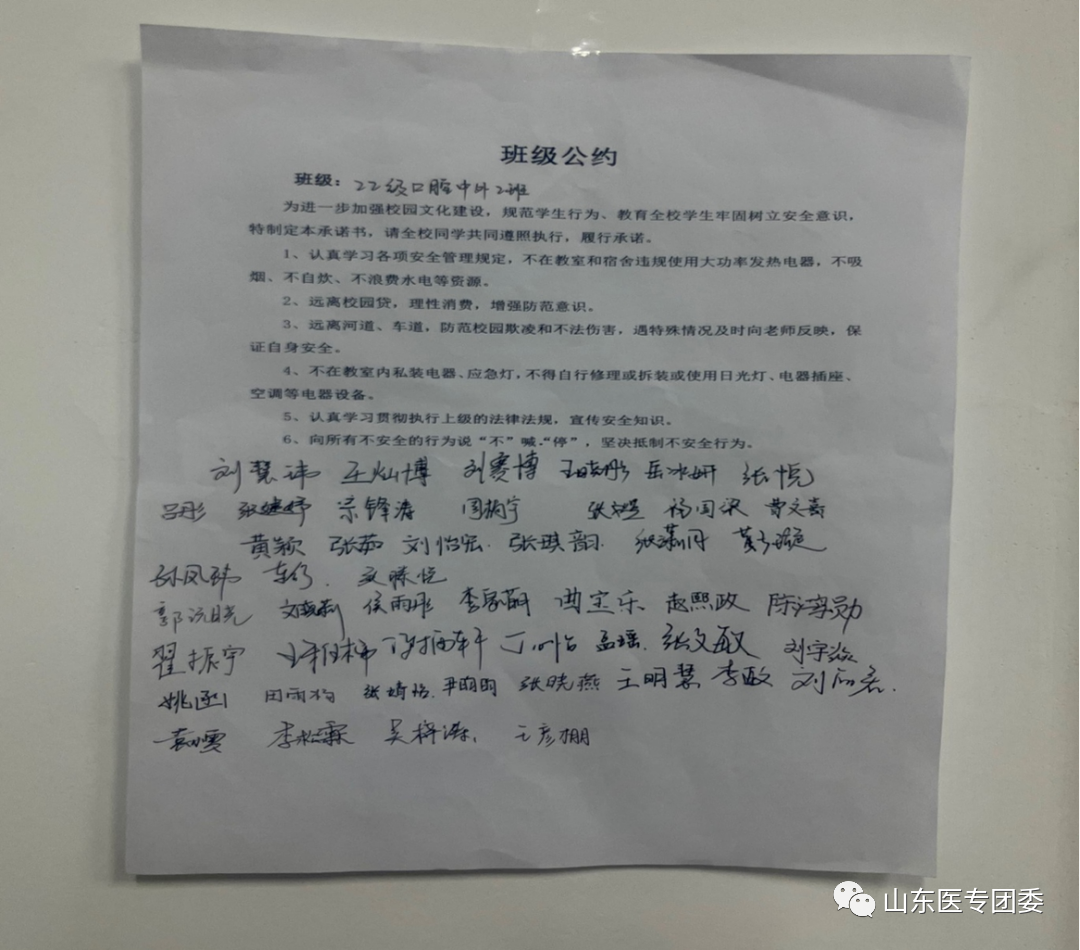 班级公约
班级：22级口腔中外2班
为进一步加强校园文化建设，规范学生行为、教育全校学生牢固树立安全意识，
特制定本承诺书，请全校同学共同遵照执行，履行承诺。
1、认真学习各项安全管理规定，不在教室和宿舍违规使用大功率发热电器，不吸
烟、不自炊、不浪费水电等资源。
2、远离校园贷，理性消费，增强防范意识。
3、远离河道、车道，防范校园欺凌和不法伤害，遇特殊情况及时向老师反映，保
证自身安全。
4、不在教室内私装电器、应急灯，不得自行修理或拆装或使用日光灯、电器插座、
空调等电器设备。
5、认真学习贯彻执行上级的法律法规，宣传安全知识。
6、向所有不安全的行为说“不”喊“停”，坚决抵制不安全行为。
刘慧玮 王灿博 刘赛博 王晓彤 岳冰妍 张悦
吕彤 宗锋涛 曹文喜
黄颖 张茹 刘怡宏 张琪韵
孙凤玮
侯雨彤 曲宝乐 赵熙政
翟振宇 孟瑶 张文敏
张靖怡 尹萌萌 张晓燕 王明慧 李敏
王彦棚
山东医专团委